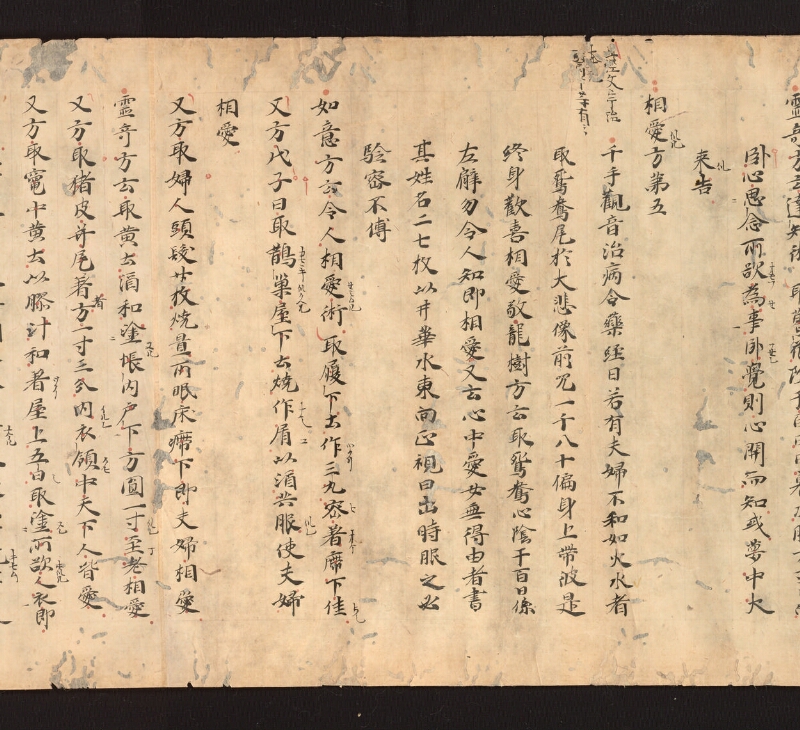 臥心思念所欲為事即覺則心開而知或夢中火
来告
相愛方第五
千手觀音治病合藥經曰若有夫婦不和如火水者
取鴛鴦尾於大悲像前咒一千八十遍身上帶彼是
終身歡喜相愛敬龍樹方云取鴛鴦心陰干百日係
左臂勿令人知即相愛又云心中愛女無得由者書
其姓名二七枚以井華水東向正視日出時服之必
驗密不傳
如意方云令人相愛術取履下土作三丸密著席下佳
又方戊子日取鵲巢屋下土燒作屑以酒共服使夫婦
相愛
又方取婦人頭髮廿枚燒置所眠床席下即夫婦相愛
靈奇方云取黃土酒和塗帳內戶下方圓一寸至老相愛
又方取猪皮并尾者方一寸三分內衣領中天下人皆愛
又方取竈中黃土以膠汁和著屋上五日取塗所欲人衣即